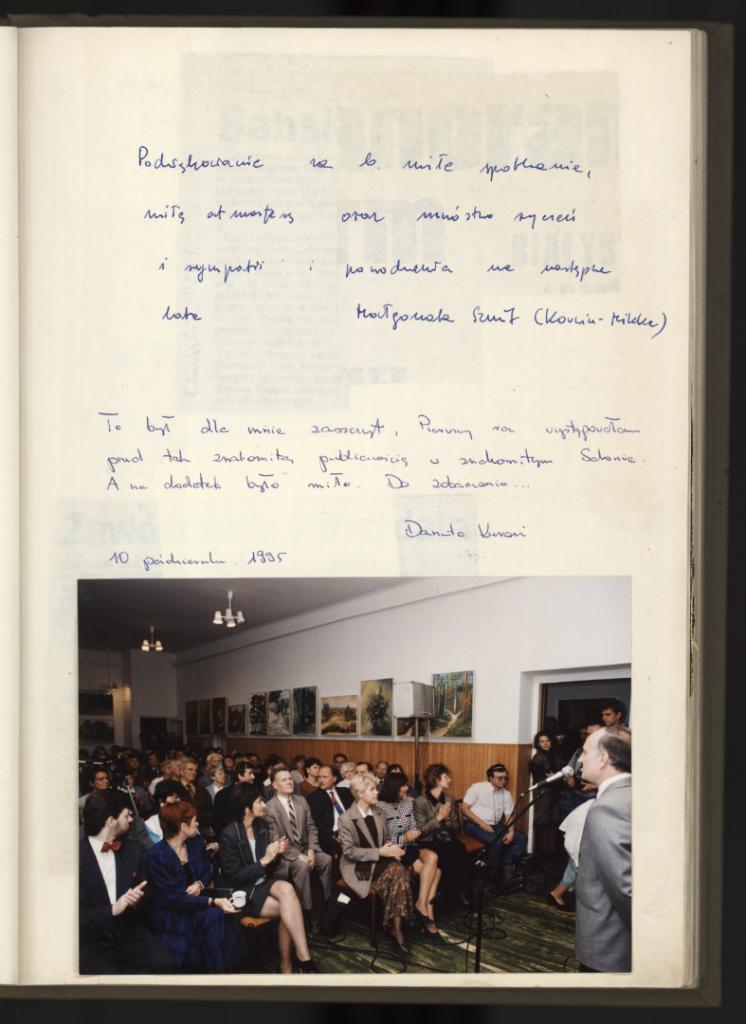 Podziękowanie za b. miłe spotkanie,
miłą atmosferę oraz mnóstwo życzeń
i sympatii i powodzenia na następne
lata Małgorzata
To był dla mnie zaszczyt, Pierwszy raz występowałam
przed tak znakomitą publicznością w znakomitym Salonie.
A na dodatek było miło. Do zobaczenia...
Danuta
10 października 1995